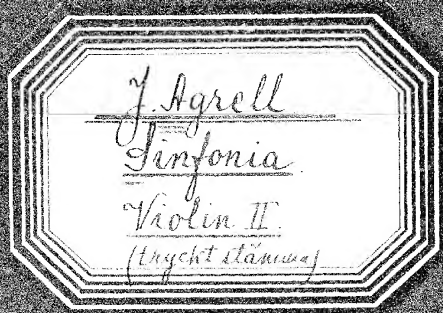 J. Agrell
Sinfonia.
Violin II.
(tryckt stämma)